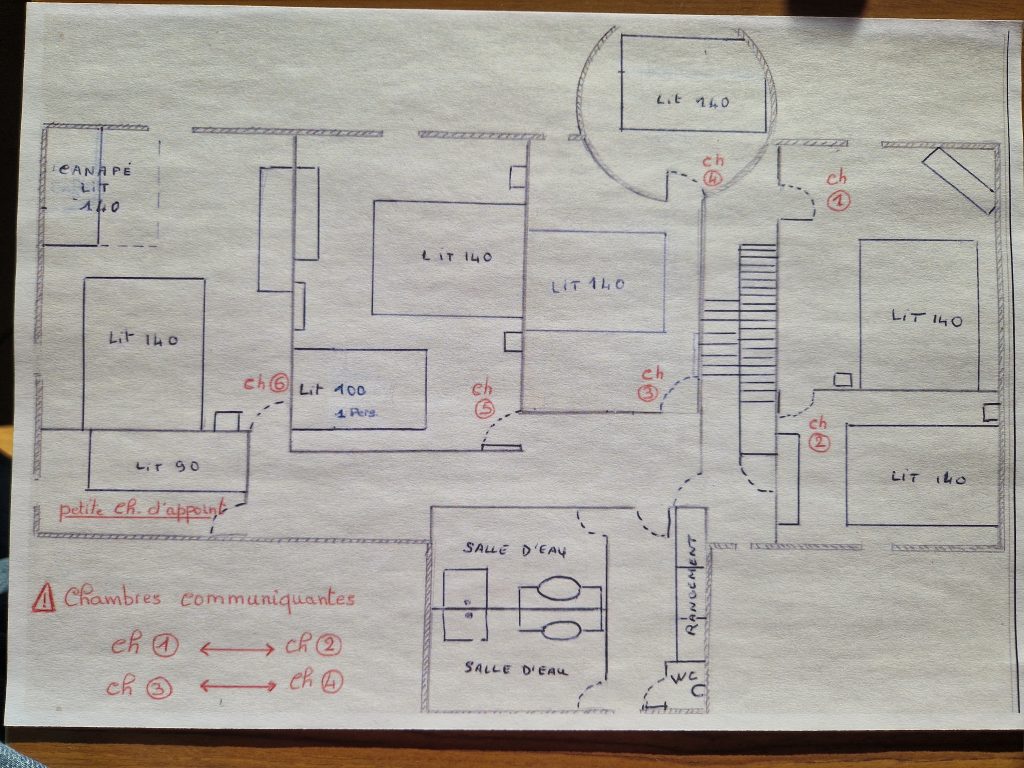 Lit 140
ch
④
ch
①
CANAPÉ
LIT
140
LIT 140
LIT 140
LIT 140
Lit 140
ch ⑥
Lit 100
1 Pers.
ch
⑤
ch
③
ch
②
LIT 90
LIT 140
petite ch. d'appoint
SALLE D'EAU
RANGEMENT
SALLE D'EAU
WC
⚠ Chambres communiquantes
ch ① ⟷ ch ②
ch ③ ⟷ ch ④